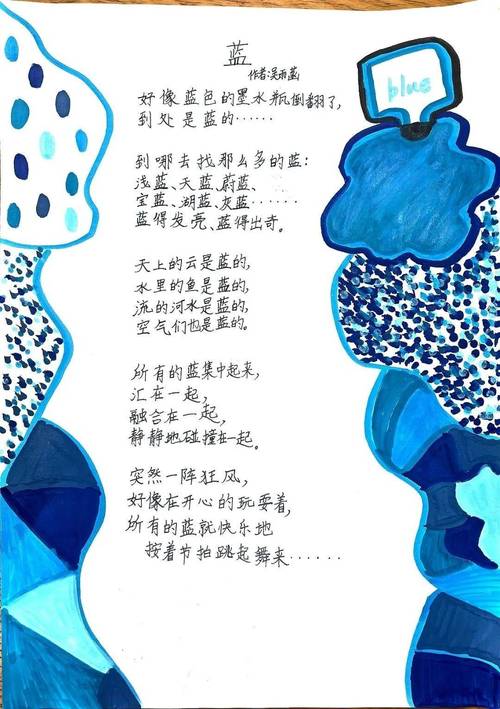 蓝
作者:吴雨菡
blue
好像蓝色的墨水瓶倒翻了,
到处是蓝的······
到哪去找那么多的蓝:
浅蓝、天蓝、蔚蓝、
宝蓝、湖蓝、灰蓝······
蓝得发亮、蓝得出奇。
天上的云是蓝的,
水里的鱼是蓝的,
流的河水是蓝的,
空气们也是蓝的。
所有的蓝集中起来,
汇在一起,
融合在一起,
静静地碰撞在一起。
突然一阵狂风,
好像在开心的玩耍着,
所有的蓝就快乐地
按着节拍跳起舞来······